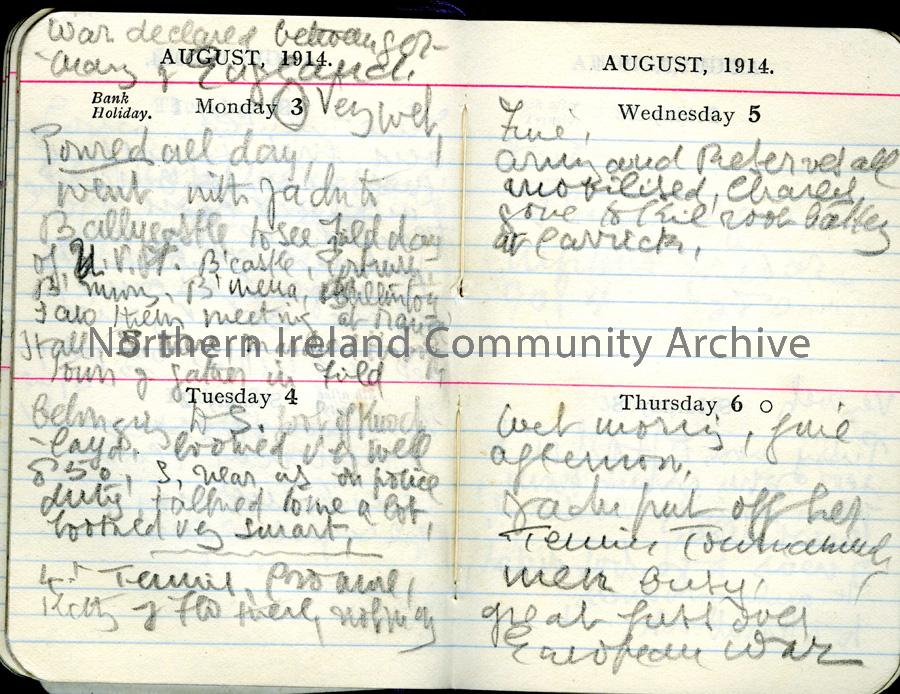 War declared between Ger-
-many & England.
AUGUST, 1914.
Bank
Holiday.
Monday 3 Very wet,
Poured all day,
went with Jack to
Ballycastle to see Field day
of U.V.F. B'castle,
B'mony, B'mena,
meeting at
Hall
Town & gather in Field
Tuesday 4
belonging to S. foot of Knock
-layd. looked very well
850, S, near us on police
duty, talked to me a lot,
looked very smart,
Tennis,
Kitty & Flo there,
AUGUST, 1914.
Wednesday 5
Fine,
Army and Reserves all
mobilised, Charles
gone to Kilroot Battery
at Carrick,
Thursday 6
Wet morning, fine
afternoon,
Jack put off her
Tennis Tournament
men busy,
great fuss over
European War
Northern Ireland Community Archive